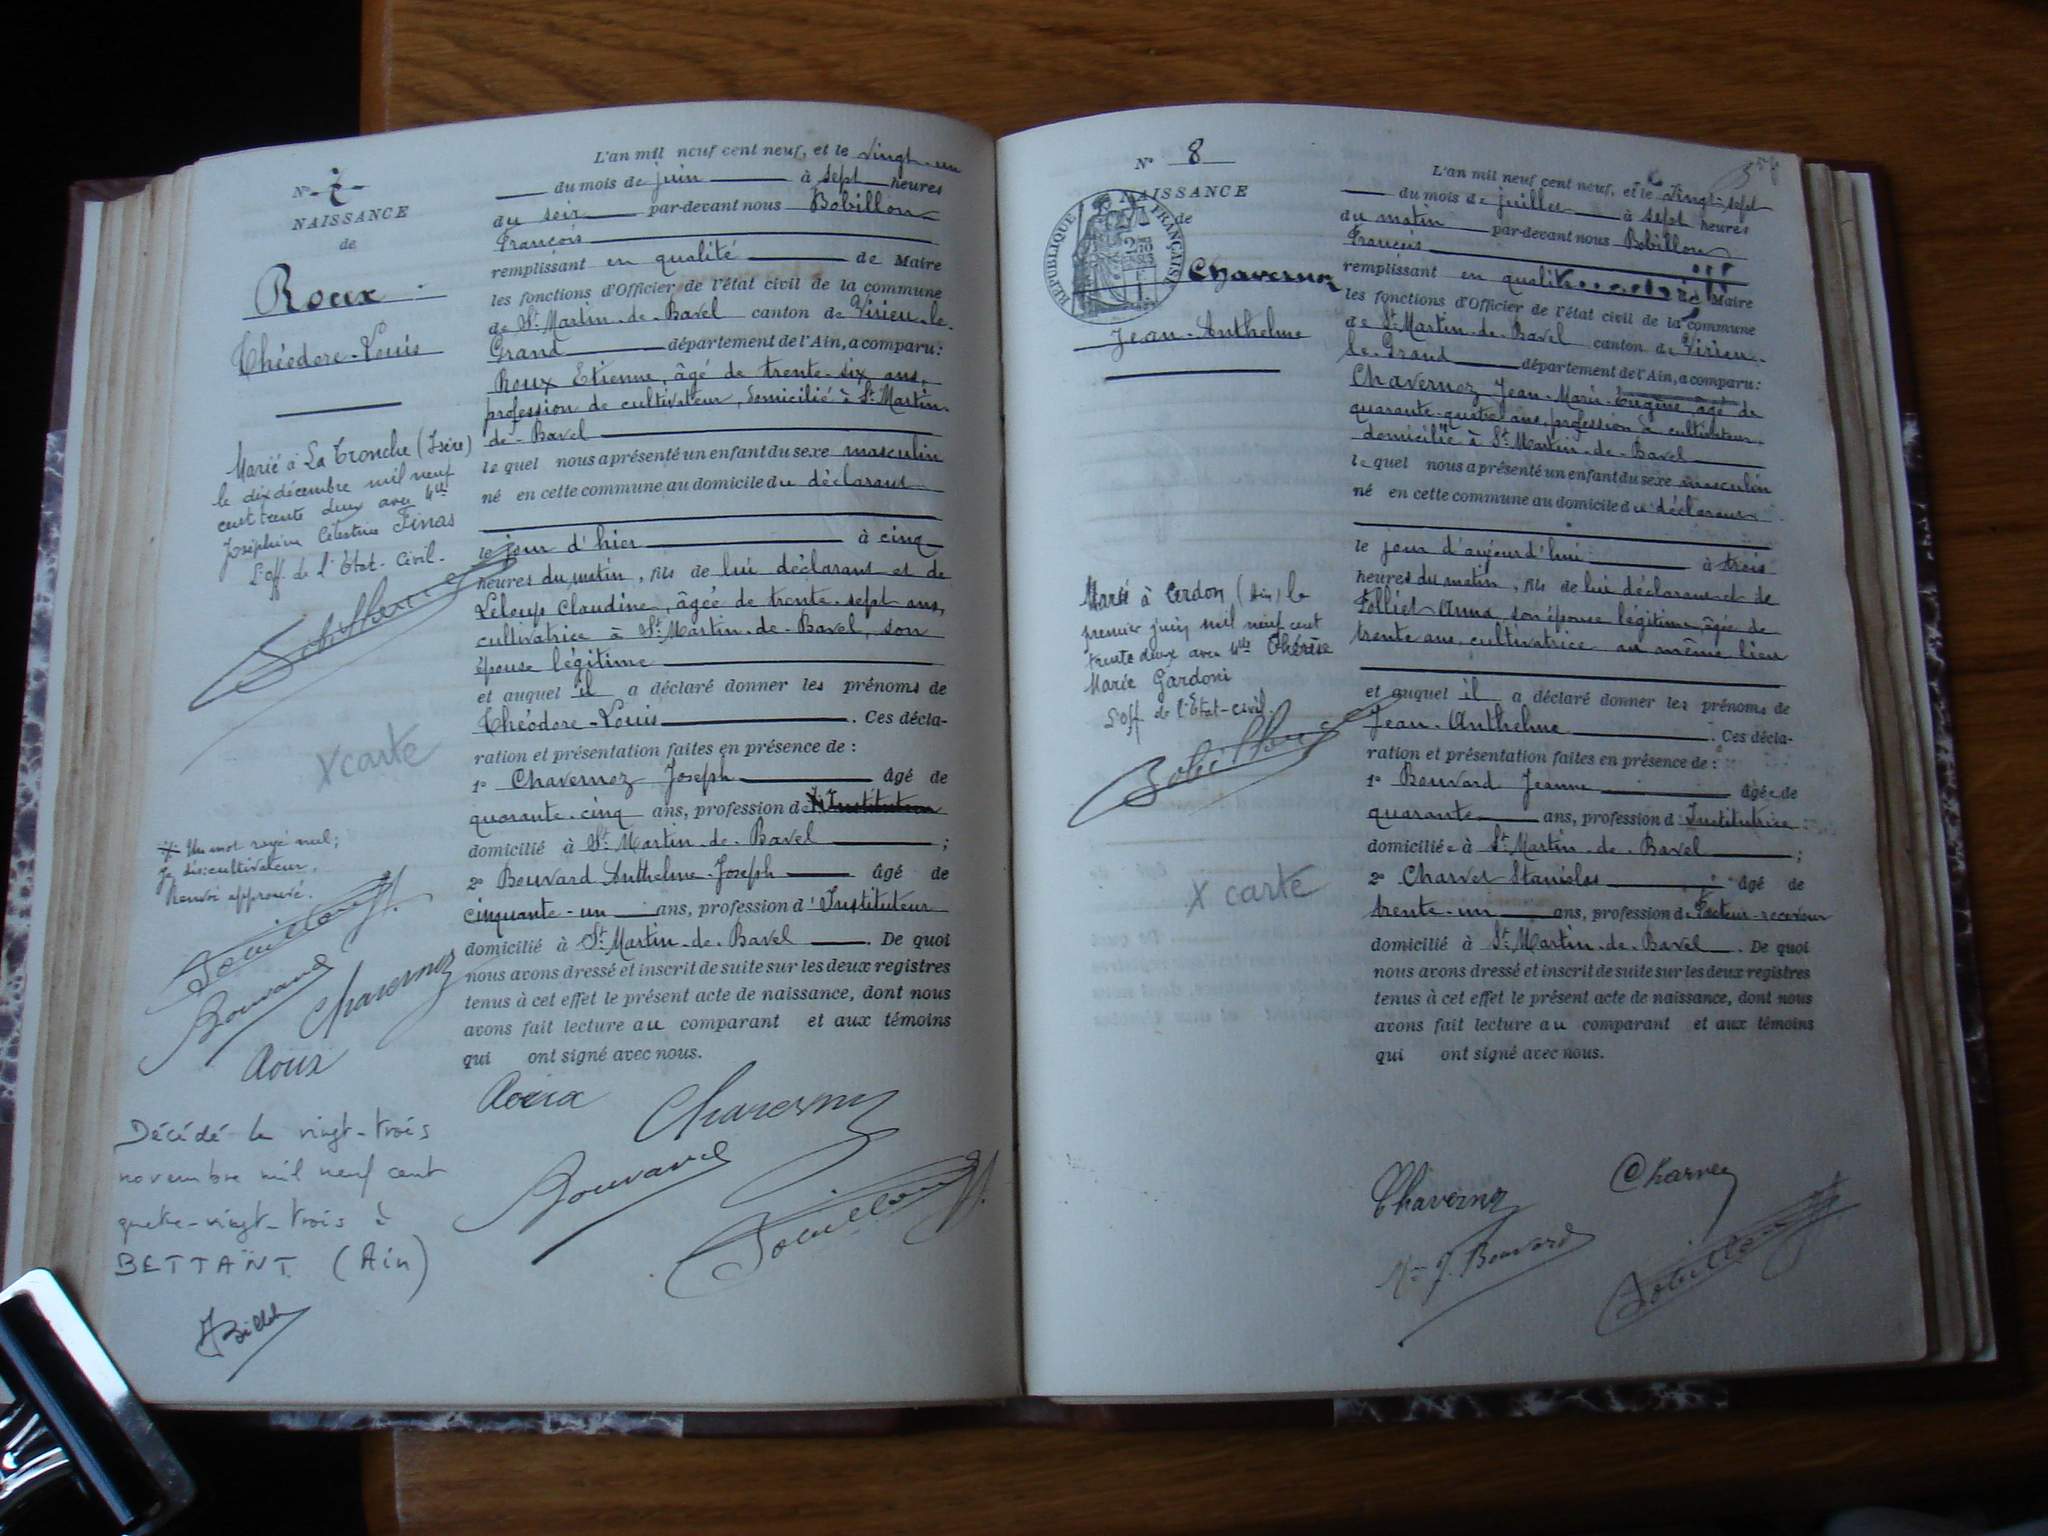 N° 7
NAISSANCE
de
Roux
Théodore-Louis
Marié à La Tronche (Isère)
le dix décembre mil neuf
cent trente deux avec Mlle
Joséphine Célestine Finas
L'off. de l'État-Civil.
X carte
Un mot rayé nul;
je dis: cultivateur.
Renvoi approuvé.
Bouvard
Chavernoz
Roux
Décédé le vingt-trois
novembre mil neuf cent
quatre-vingt-trois à
BETTANT (Ain)
L'an mil neuf cent neuf, et le vingt-un
du mois de juin à sept heures
du soir par-devant nous Bobillon
François
remplissant en qualité de Maire
les fonctions d'Officier de l'état civil de la commune
de St Martin-de-Bavel canton de Virieu-le-
Grand département de l'Ain, a comparu:
Roux Etienne, âgé de trente-six ans,
profession de cultivateur, domicilié à St Martin-
de-Bavel
le quel nous a présenté un enfant du sexe masculin
né en cette commune au domicile du déclarant
le jour d'hier à cinq
heures du matin, fils de lui déclarant et de
Leloup Claudine, âgée de trente-sept ans,
cultivatrice à St Martin-de-Bavel, son
épouse légitime
et auquel il a déclaré donner les prénoms de
Théodore-Louis. Ces décla-
ration et présentation faites en présence de :
1° Chavernoz Joseph âgé de
quarante-cinq ans, profession d'Instituteur
domicilié à St Martin-de-Bavel ;
2° Bouvard Anthelme-Joseph âgé de
cinquante-un ans, profession d'Instituteur
domicilié à St Martin-de-Bavel. De quoi
nous avons dressé et inscrit de suite sur les deux registres
tenus à cet effet le présent acte de naissance, dont nous
avons fait lecture au comparant et aux témoins
qui ont signé avec nous.
Roux
Chavernoz
Bouvard
Bobillon
N° 8
NAISSANCE
de
RÉPUBLIQUE FRANÇAISE
Chavernoz
Jean-Anthelme
Marié à Cerdon (Ain) le
premier juin mil neuf cent
trente deux avec Mlle Thérèse
Marie Gardoni
L'off. de l'État-civil.
Bobillon
X carte
L'an mil neuf cent neuf, et le vingt-sept
du mois de juillet à sept heures
du matin par-devant nous Bobillon
François
remplissant en qualité de Maire
les fonctions d'Officier de l'état civil de la commune
de St Martin-de-Bavel canton de Virieu-
le-Grand département de l'Ain, a comparu:
Chavernoz Jean-Marie-Eugène, âgé de
quarante-quatre ans, profession de cultivateur,
domicilié à St Martin-de-Bavel
le quel nous a présenté un enfant du sexe masculin
né en cette commune au domicile du déclarant
le jour d'aujourd'hui à trois
heures du matin, fils de lui déclarant et de
Folliet Anna, son épouse légitime, âgée de
trente ans, cultivatrice au même lieu
et auquel il a déclaré donner les prénoms de
Jean-Anthelme. Ces décla-
ration et présentation faites en présence de :
1° Bouvard Jeanne âgée de
quarante ans, profession d'Institutrice
domiciliée à St Martin-de-Bavel ;
2° Charvet Stanislas âgé de
trente-un ans, profession de Facteur-receveur
domicilié à St Martin-de-Bavel. De quoi
nous avons dressé et inscrit de suite sur les deux registres
tenus à cet effet le présent acte de naissance, dont nous
avons fait lecture au comparant et aux témoins
qui ont signé avec nous.
Chavernoz
Charvet
Bouvard
Bobillon